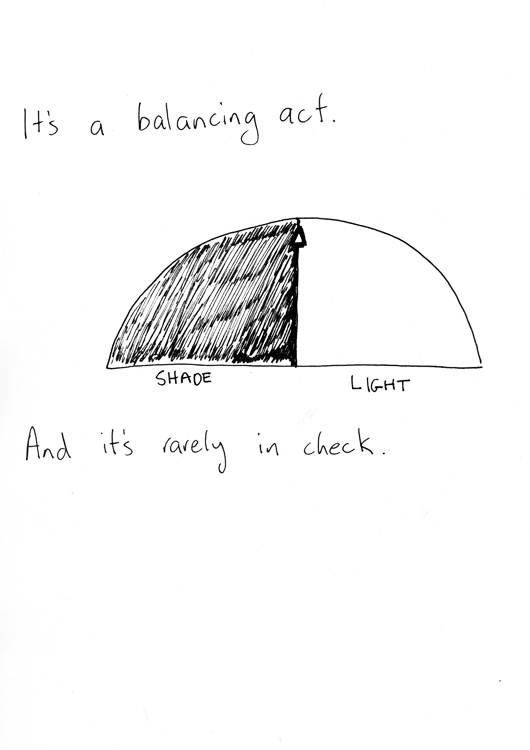 It's a balancing act.
SHADE LIGHT
And it's rarely in check.